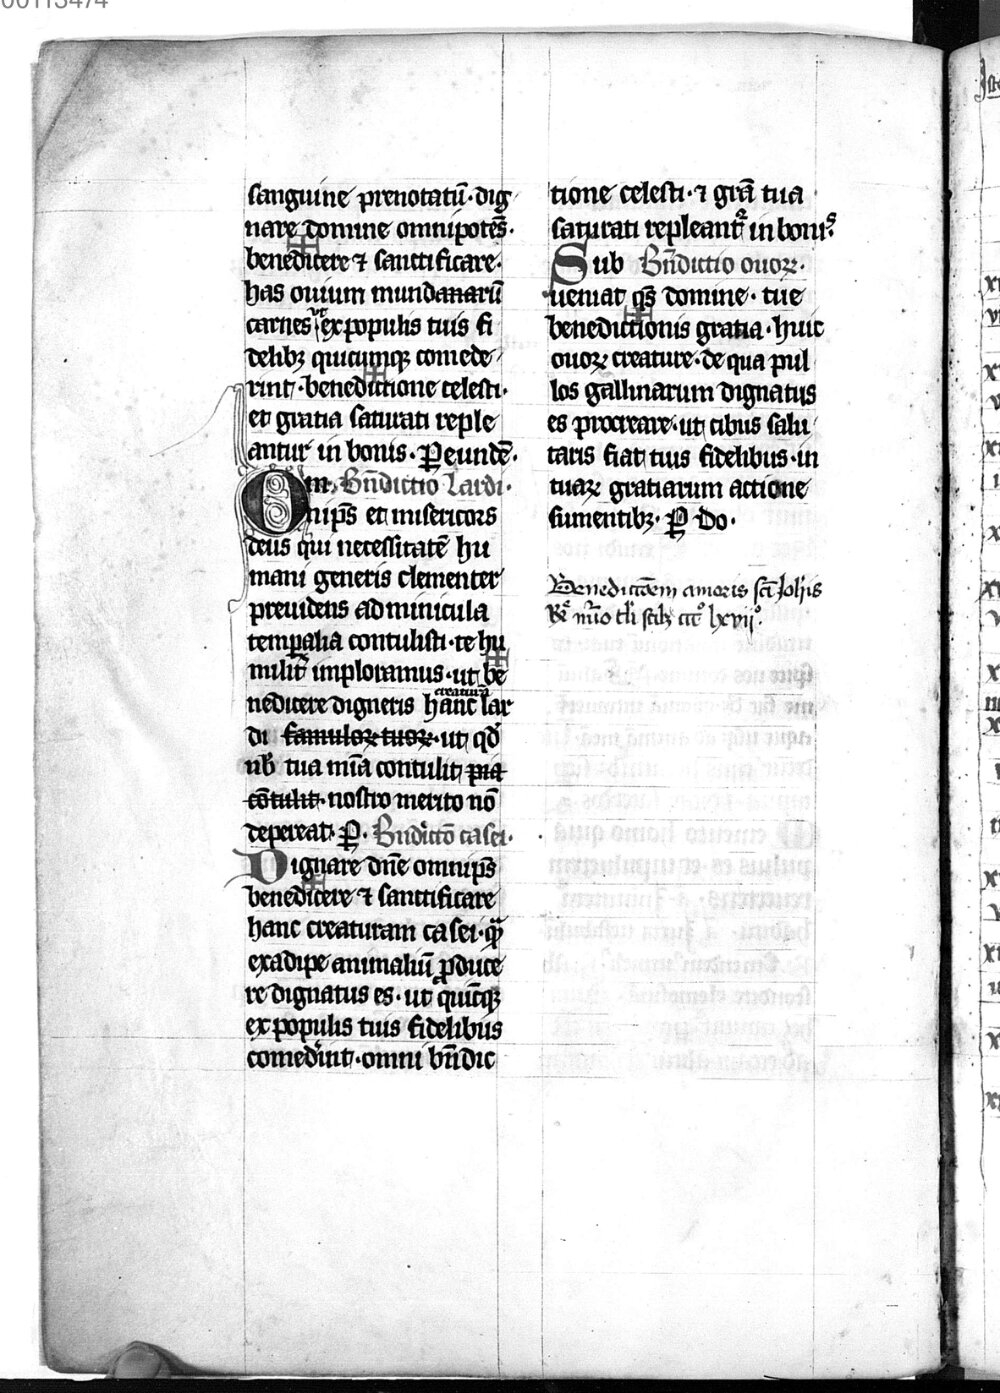 sanguine prenotatū· dig
nare domine omnipotēs·
benedicere ⁊ sanctificare·
has ouium mundanarū
carnes ut ex populis tuis fi
delibꝫ quicumqꝫ comede
rint· benedictione celesti·
et gratia saturati reple
antur in bonis· Per eundē·
Bn̄dictio Lardi·
Omīps et misericors
deus qui necessitatē hu
mani generis clementer
preuidens adminicula
temꝑalia contulisti· te hu
milit̄ imploramus· ut be
nedicere digneris hanc creaturā lar
di famuloꝝ tuoꝝ· ut qd̄
nb̄ tua mīa contulit pia
cōtulit· nostro merito nō
depereat· P̱· Bn̄dictō casei·
Dignare dn̄e omnip̄s
benedicere ⁊ sanctificare
hanc creaturam casei· quā
ex adipe animaliū ꝓduce
re dignatus es· ut quicūqꝫ
ex populis tuis fidelibus
comed̄int· omni bn̄dic
tione celesti· ⁊ grā tua
saturati repleant᷑ in bonis
Sub Bn̄dictio ouoꝝ·
ueniat qs̄ domine· tue
benedictionis gratia· huic
ouoꝝ creature· de qua pul
los gallinarum dignatus
es procreare· ut cibus salu
taris fiat tuis fidelibus· in
tuaꝝ gratiarum actione
sumentibꝫ· P̱ Do·
Benedictōem amoris sct̄ Joh̄is
lxvij°